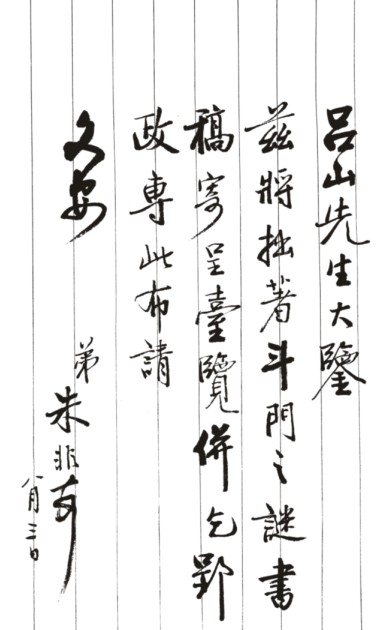 呂山先生大鑒
茲將拙著斗門之謎書
稿寄呈臺覽併乞郢
政專此布請
文安
弟朱非
八月三日